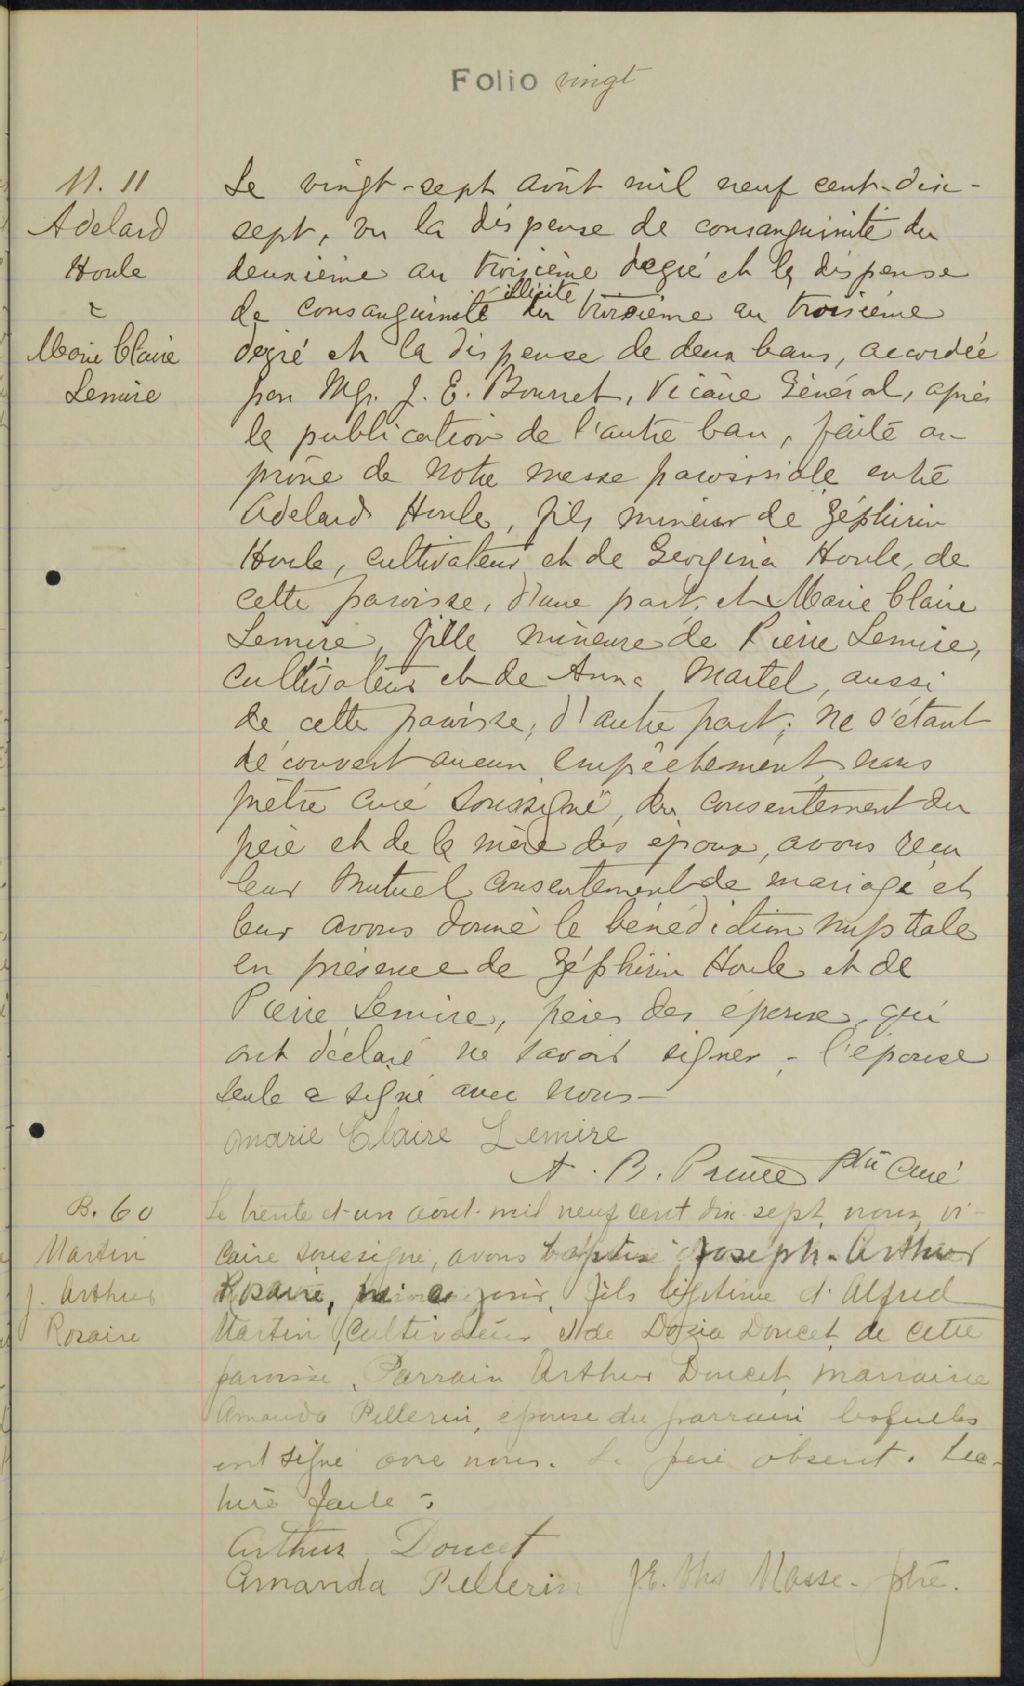 Folio vingt
M. 11
Adelard
Houle
&
Marie Claire
Lemire
Le vingt-sept août mil neuf cent-dix-
sept, vu la dispense de consanguinité du
deuxième au troisième degré et la dispense
de consanguinité illicite du troisième au troisième
degré et la dispense de deux bans, accordée
par Mgr. J. E. Bourret, Vicaire Général, après
la publication de l'autre ban, faite au
prône de notre messe paroissiale entre
Adelard Houle, fils mineur de Zéphirin
Houle, cultivateur et de Georgina Houle, de
cette paroisse, d'une part, et Marie Claire
Lemire, fille mineure de Pierre Lemire,
cultivateur et de Anna Martel, aussi
de cette paroisse, d'autre part; ne s'étant
découvert aucun empêchement, nous
prêtre curé soussigné, du consentement du
père et de la mère des époux, avons reçu
leur mutuel consentement de mariage et
leur avons donné la bénédiction nuptiale
en présence de Zéphirin Houle et de
Pierre Lemire, pères des époux, qui
ont déclaré ne savoir signer - l'épouse
seule a signé avec nous-
Marie Claire Lemire
A. B. Prince Ptre Curé
B. 60
Martin
J. Arthur
Rosaire
Le trente et un août mil neuf cent dix sept, nous, vi-
caire soussigné, avons baptisé Joseph-Arthur
Rosaire, né ce jour, fils légitime d'Alfred
Martin, cultivateur et de Dozia Doucet, de cette
paroisse, Parrain Arthur Doucet, marraine
Amanda Pellerin, épouse du parrain lesquels
ont signé avec nous. Le père absent. Lec-
ture faite.
Arthur Doucet
Amanda Pellerin J.E. Masse. ptre.